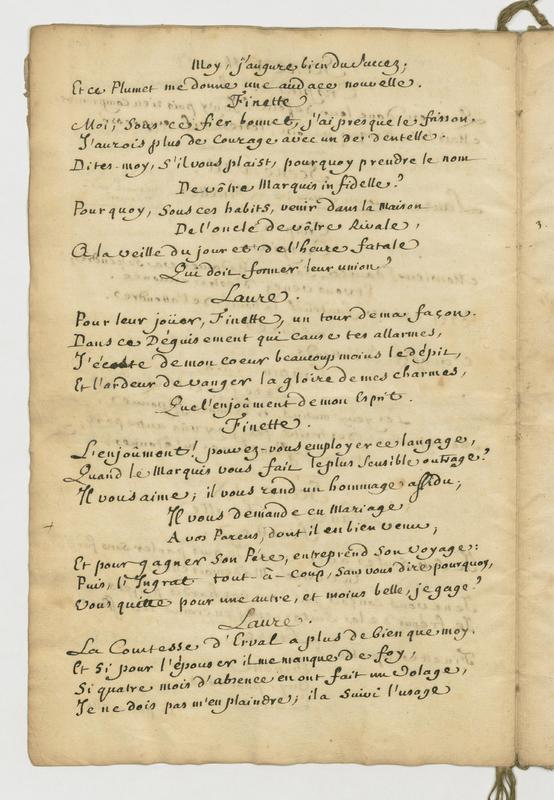 Moy, j'augure bien du Succez;
Et ce Plumet me donne une audace nouvelle.
Finette
Moi, Sous ce fier bonnet, j'ai presque le frisson.
J'aurois plus de Courage avec un de dentelle.
Dites-moy, S'il vous plaist, pourquoy prendre le nom
De vôtre Marquis infidelle?
Pourquoy, Sous ces habits, venir dans la Maison
De l'oncle de vôtre Rivale,
A la veille du jour et de l'heure fatale
Qui doit former leur union?
Laure.
Pour leur joüer, Finette, un tour de ma façon.
Dans ce Déguisement qui cause tes allarmes,
J'écoute de mon coeur beaucoup moins le dépit,
Et l'ardeur de vanger la gloire de mes charmes,
Que l'enjoûment de mon Esprit.
Finette.
L'enjoûment! pouvez-vous employer ce langage,
Quand le Marquis vous fait le plus Sensible outrage?
Il vous aime; il vous rend un hommage assidu;
Il vous demande en Mariage
A vos Parens, dont il est bien venu;
Et pour gagner Son Pére, entreprend Son voyage:
Puis, l'Ingrat tout-à-coup, Sans vous dire pourquoy,
Vous quitte pour une autre, et moins belle, je gage?
Laure.
La Comtesse d'Erval a plus de bien que moy.
Et Si pour l'épouser il me manque de foy,
Si quatre mois d'absence en ont fait un volage,
Je ne dois pas m'en plaindre; il a Suivi l'usage